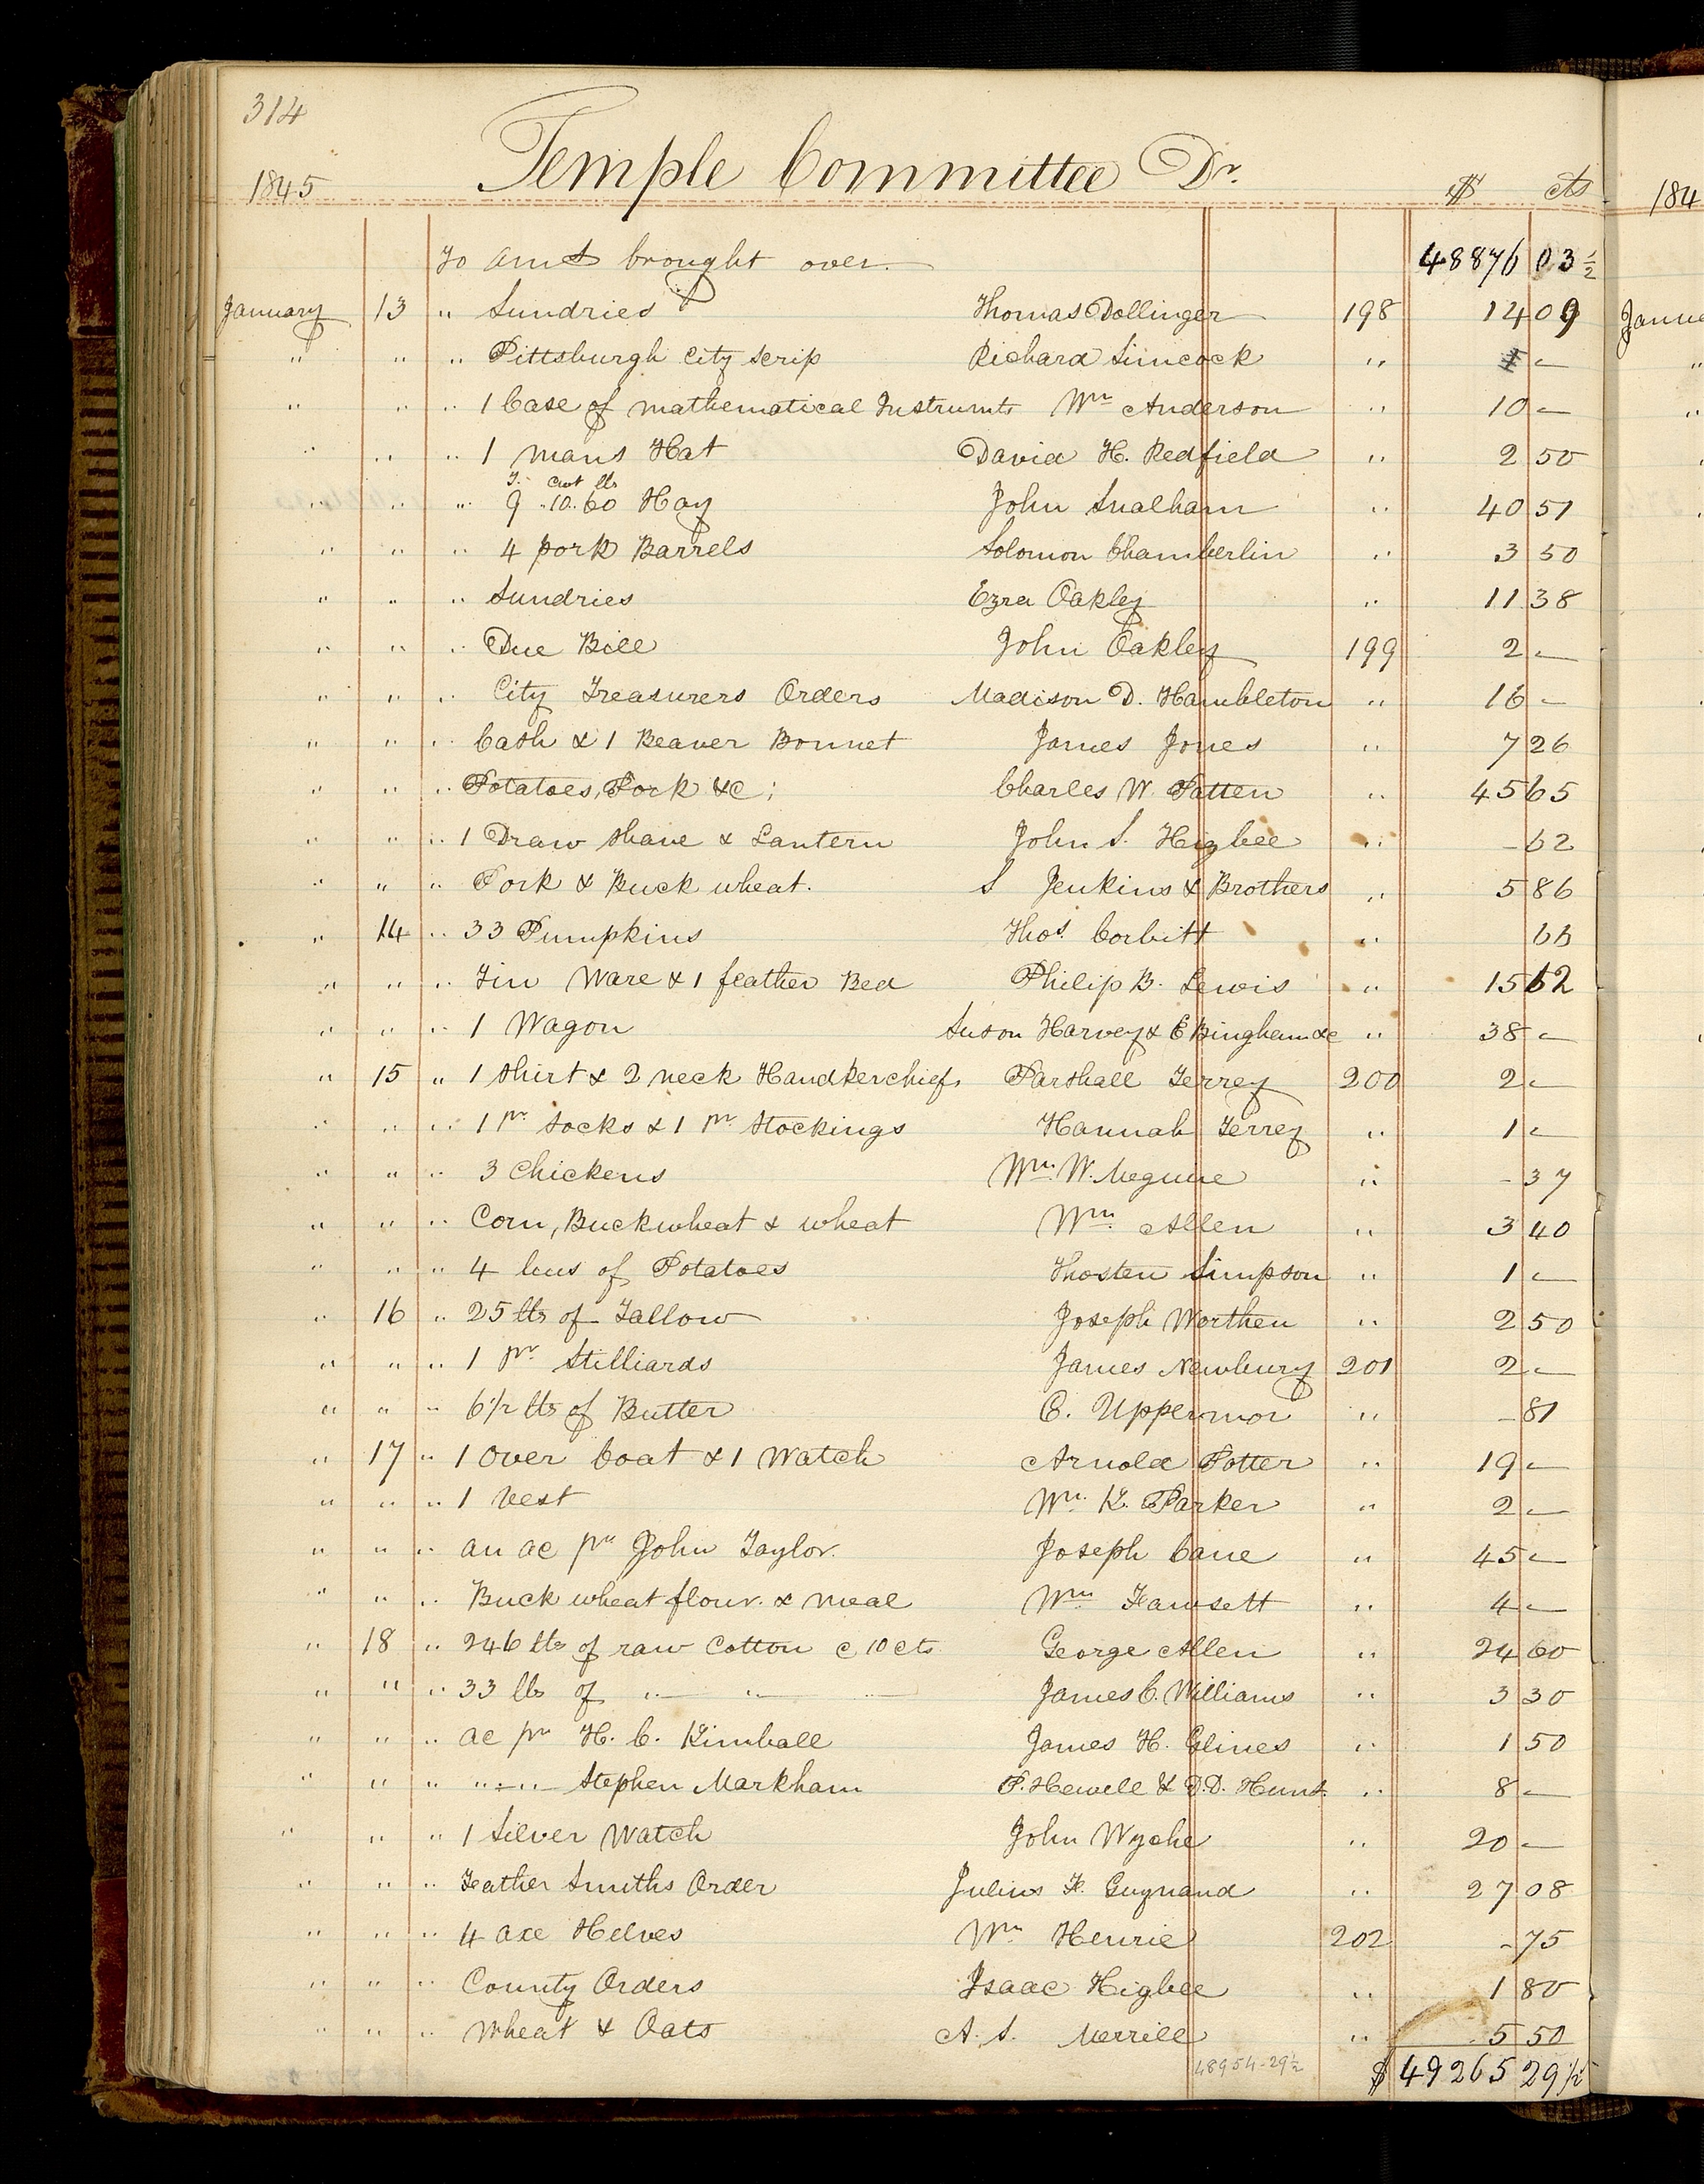 314
Temple Committee Dr.
1845 $ cts 184
To amt brought over. 48876 03 1/2
January 13 " Sundries Thomas Dollinger 198 14 09 Janua
" " " Pittsburgh City Scrip Richard Simcock " —
" " " 1 Case of mathematical Instrumts Wm Anderson " 10 —
" " " 1 mans Hat David H. Redfield " 2 50
T. cwt lbs
" " " 9 .. 10. 60 Hay John Snalham " 40 51
" " " 4 pork Barrels Solomon Chamberlin " 3 50
" " " Sundries Ezra Oakley " 11 38
" " " Due Bill John Oakley 199 2 —
" " " City Treasurers Orders Madison D. Hambleton " 16 —
" " " Cash & 1 Beaver Bonnet James Jones " 7 26
" " " Potatoes, Pork &c; Charles W. Patten " 45 65
" " " 1 Draw Shave & Lantern John S. Higbee " - 62
" " " Pork & Buck wheat. S Jenkins & Brothers " 5 86
" 14 " 33 Pumpkins Thos. Corbitt " 66
" " " Tin Ware & 1 feather Bed Philip B. Lewis " 15 62
" " " 1 Wagon Harvey & E Bingham &c " 38 —
" 15 " 1 Shirt & 2 neck Handkerchiefs Parshall Terrey 200 2 —
" " " 1 pr. Socks & 1 pr. Stockings Hannah Terrey " 1 —
" " " 3 Chickens Wm. W. Meguire " - 37
" " " Corn, Buckwheat & wheat Wm. Allen " 3 40
" " " 4 bus of Potatoes Thosten Simpson " 1 —
" 16 " 25 lbs of Tallow Joseph Worthen " 2 50
" " " 1 pr. Stilliards James Newbury 201 2 —
" " " 6 1/2 lbs of Butter C. Uppermor " - 81
" 17 " 1 Over Coat & 1 Watch Arnold Potter " 19 —
" " " 1 Vest Wm. K. Parker " 2 —
" " " an ac pr John Taylor. Joseph Cane " 45 —
" " " Buck wheat flour. & meal Wm. Fawsett " 4 —
" 18 " 246 lbs of raw Cotton c 10 cts George Allen " 24 60
" " " 33 lbs of " — " — James C. Williams " 3 30
" " " ac pr H. C. Kimball James H. Glines " 1 50
" " " " — " — Stephen Markham P. Hewell & D.D. Hunt. " 8 —
" " " 1 Silver Watch John Wyche " 20 —
" " " Feather Smiths Order Julius F. Guynand " 27 08
" " " 4 axe Helves Wm Henrie 202 - 75
" " " County Orders Isaac Higbee " 1 80
" " " Wheat & Oats A. S. Merrill " 5 50
48954-29 1/2
$ 49265 29 1/2